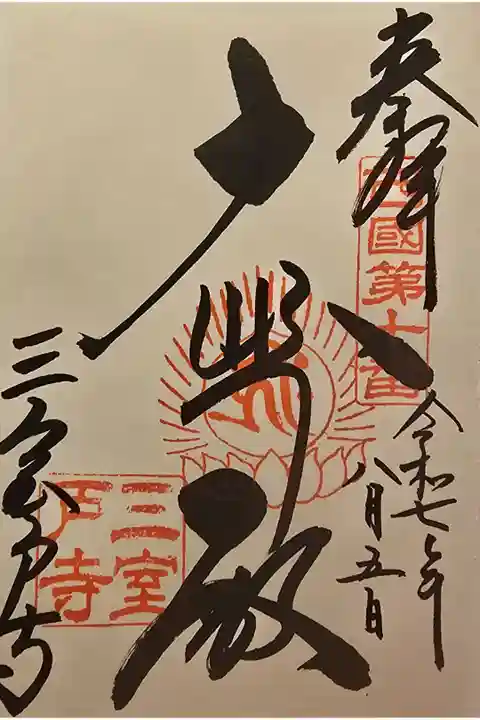 奉拝
西国第十番
令和七年
八月五日
大悲殿
三室戸寺
三室
戸寺